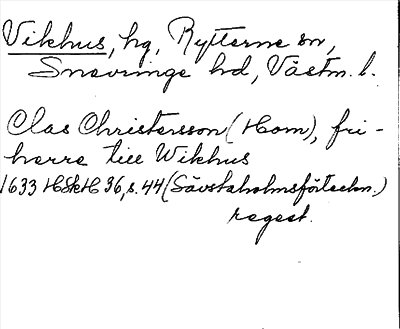 Vikhus, hg, Rytterne sn,
Snevringe hd, Västm. l.
Clas Christersson (Horn), fri-
herre till Wikhus
1633 HSkH 36, s. 44 (Sävstaholmsförteckn.)
regest.